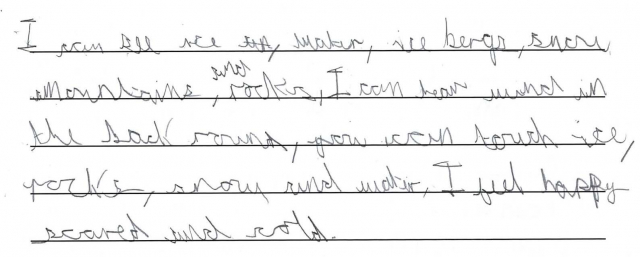 I can see ice, water, ice bergs, snow
mountains, and rocks, I can hear wind in
the back round, you can touch ice,
rocks, snow and water, I feel happy
scared and cold.